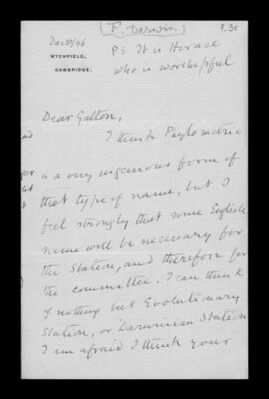 [F. Darwin]
P. 35
Dec 8/96
WYCHFIELD,
CAMBRIDGE.
PS It is Horace
who is worshipful
Dear Galton,
I think Phylometric
is a very ingenious form of
that type of name, but I
feel strongly that some English
name will be necessary for
the Station, and therefore for
the committee. I can think
of nothing but Evolutionary
Station, or Darwinian Station
I am afraid I think your